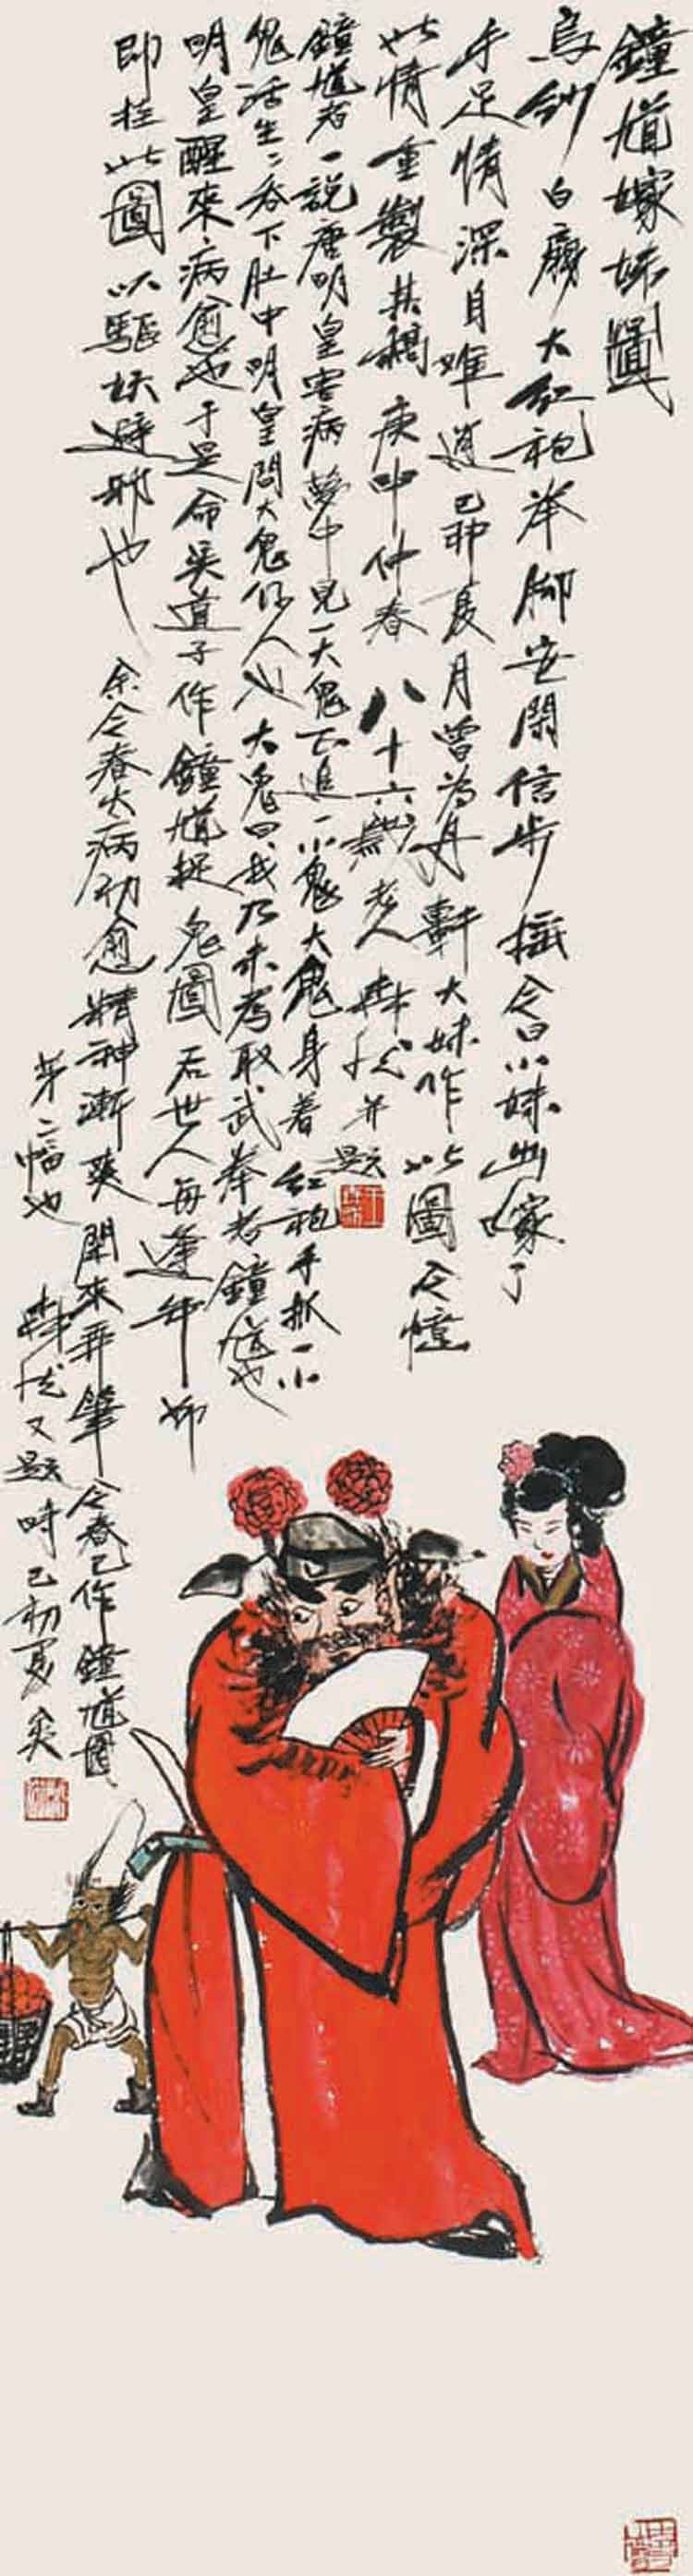 鐘馗嫁妹圖
烏紗白扇大紅袍举脚安閑信步摇今日小妹出嫁了
手足情深自难道己卯夏月曾為丹軒大妹作此圖今憶
此情重製其稿庚申仲春八十六歲老人 并題
鐘馗者一説唐明皇害病夢中見一大鬼正追一小鬼大鬼身着红袍手抓一小
鬼活生二吞下肚中明皇問大鬼何人也大鬼曰我乃未考取武举者鐘馗也
明皇醒來病愈也于是命吴道子作鐘馗捉鬼圖后世人每逢年節
即挂此圖以驅妖避邪也 余今春大病初愈精神漸爽閑來弄筆今春已作鐘馗圖
第二幅也 又題時已初夏矣